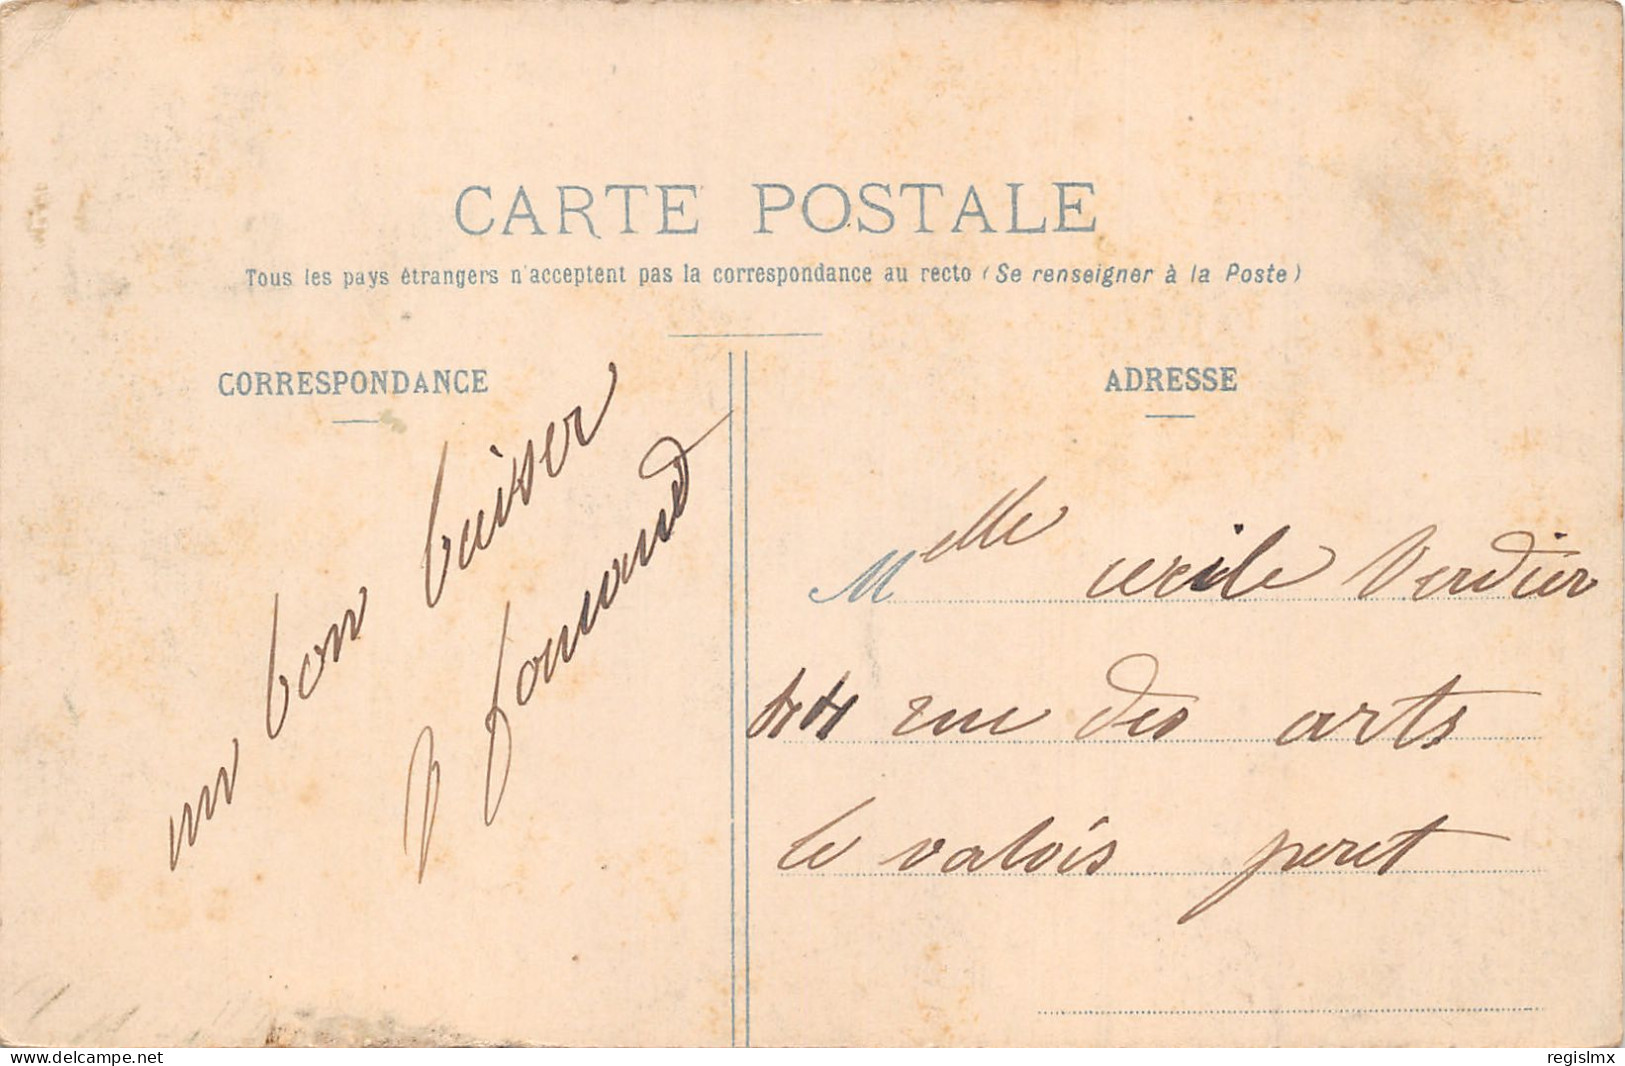 CARTE POSTALE
Tous les pays étrangers n'acceptent pas la correspondance au recto (Se renseigner à la Poste)
CORRESPONDANCE
un bon baiser
ADRESSE
Melle cecile Verdier
44 rue des arts
le valois peret
delcampe.net
regislmx